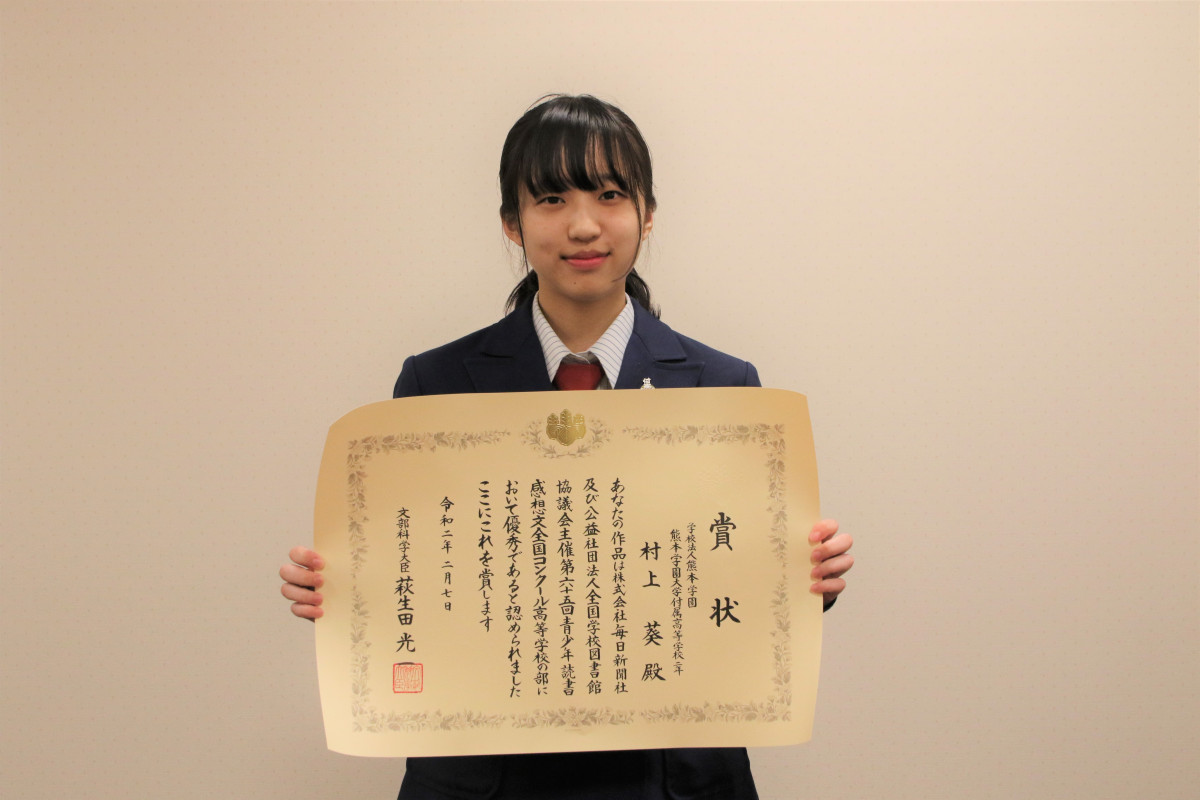 賞状
学校法人熊本学園
熊本学園大学付属高等学校二年
村上葵殿
あなたの作品は株式会社毎日新聞社
及び公益社団法人全国学校図書館
協議会主催第六十五回青少年読書
感想文全国コンクール高等学校の部に
おいて優秀であると認められました
ここにこれを賞します
令和二年二月七日
文部科学大臣 萩生田光一